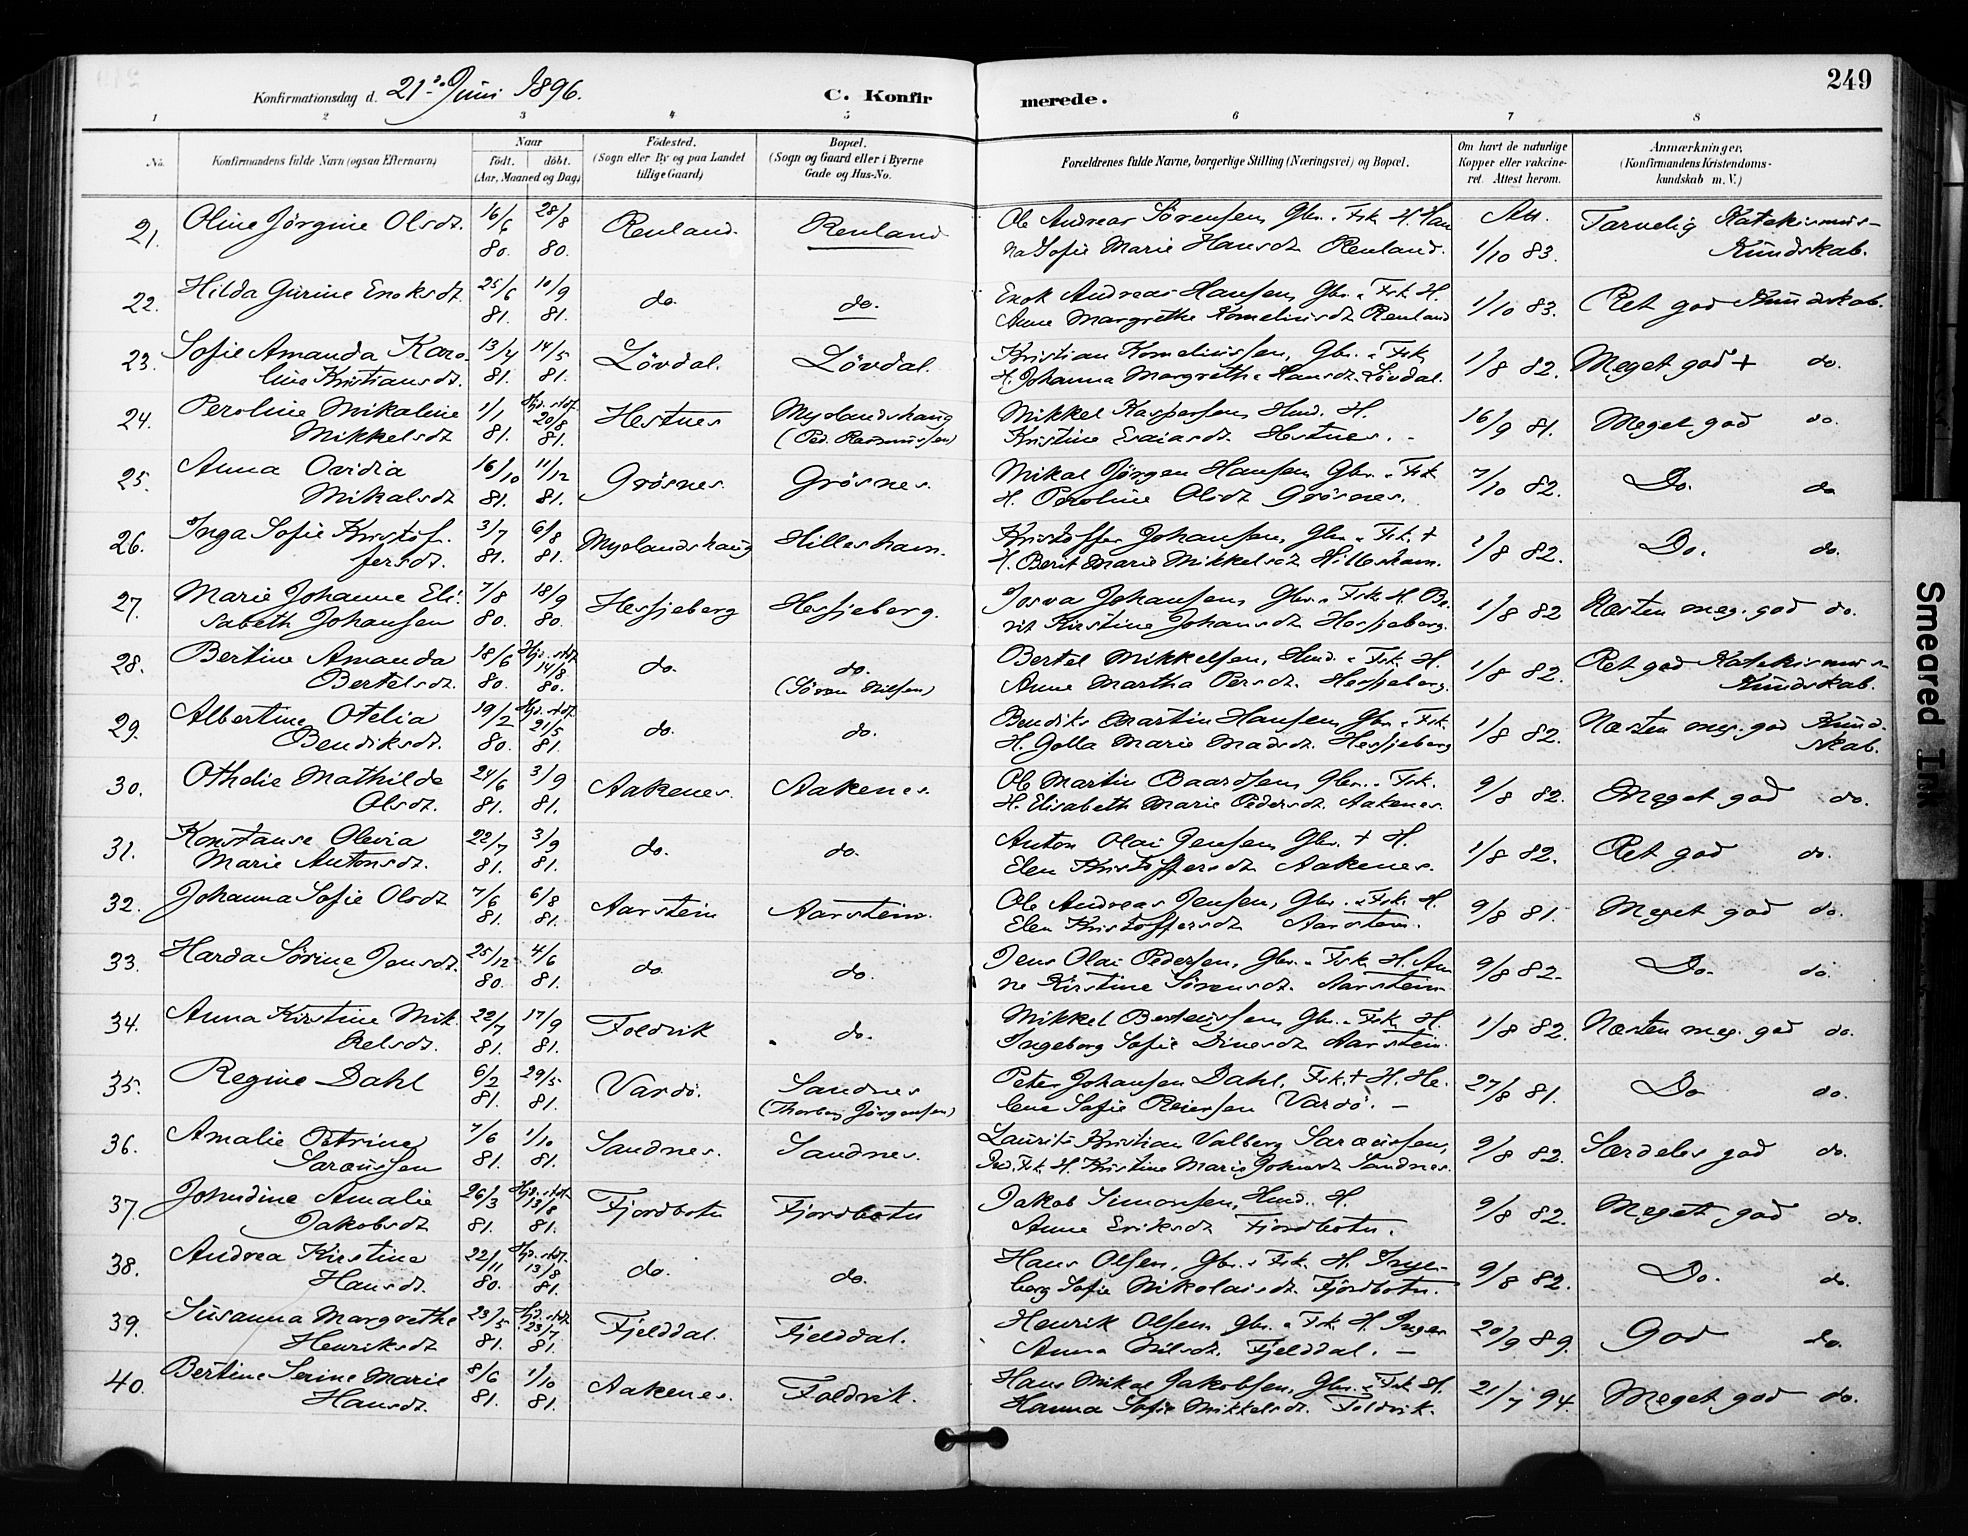 249
Konfirmationsdag d. 21de Juni 1896.
C. Konfirmerede.
1 2 3 4 5 6 7 8
No.
Konfirmandens fulde Navn (ogsaa Efternavn)
Naar
født. døbt.
(Aar, Maaned og Dag)
Fødested.
(Sogn eller By og paa Landet
tillige Gaard)
Bopæl.
(Sogn og Gaard eller i Byerne
Gade og Hus-No.
Forældrenes fulde Navne, borgerlige Stilling (Næringsvei) og Bopæl.
Om havt de naturlige
Kopper eller vakcine-
ret. Attest herom.
Anmærkninger,
(Konfirmandens Kristendoms-
kundskab m. V.)
21. Oline Jørgine Olsdt. 16/6 80. 28/8 80. Renland. Renland Ole Andreas Sørensen, Gbr. & Fsk. H. Han
na Sofie Marie Hansdt. Renland. Att. 1/10 83. Tarvelig Katekismus-
Kundskab.
22. Hilda Gurine Enoksdt. 25/6 81. 10/9 81. do. do. Enok Andreas Hansen, Gbr. & Fsk. H.
Anne Margrethe Korneliusdt. Renland 1/10 83. Ret god Kundskab.
23. Sofie Amanda Karo-
line Kristiansdt. 13/4 81. 14/5 81. Løvdal. Løvdal Kristian Korneliussen, Gbr. & Fsk.
H. Johanna Margrethe Hansdt. Løvdal. 1/8 82. Meget god + do.
24. Peroline Mikaline
Mikkelsdt 1/1 81. Hjd. støf. 20/8 81. Hestnes Myrlandshaug
(Ped. Rasmussen) Mikkel Kaspersen, Hmd. H.
Kristine Esaiasdt. Hestnes. - 16/9 81. Meget god do.
25. Anna Ovidia
Mikalsdt 16/10 81. 11/12 81. Grøsnes. Grøsnes. Mikal Jørgen Hansen, Gbr. & Fsk.
H. Peroline Olsdt. Grøsnes. 7/10 82. Do. do
26. Inga Sofie Kristof-
fersdt. 3/7 81. 6/8 81. Myrlandshaug Hilleshavn. Kristoffer Johansen, Gbr. & Fsk. +
H. Berit Marie Mikkelsdt. Hilleshavn. 1/8 82. Do. do.
27. Marie Johanne Eli-
sabeth Johansen 7/8 80. 18/9 80. Hessjeberg Hessjeberg. Josva Johansen, Gbr. & Fsk. H. Be
rit Kirstine Johansdt. Hessjeberg. 1/8 82 Næsten meg. god do.
28. Bertine Amanda
Bertelsdt. 18/6 80. Hjd. støf. 14/8 80. do. do.
(Søren Nilsen) Bertel Mikkelsen, Hmd. & Fsk. H.
Anne Martha Persdt. Hessjeberg. 1/8 82. Ret god Katekismus-
Kundskab.
29. Albertine Otelia
Bendiksdt. 19/2 80. Hjd. støf. 21/5 81. do. do. Bendiks Martin Hansen, Gbr. & Fsk.
H. Golla Marie Madsdt. Hessjeberg 1/8 82. Næsten meg. god Kund-
skab.
30. Othelie Mathilde
Olsdt. 24/6 81. 3/9 81. Aakenes. Aakenes. Ole Martin Baardsen, Gbr. & Fsk.
H. Elisabeth Marie Pedersdt. Aakenes. 9/8 82. Meget god do.
31. Konstanse Olevia
Marie Antonsdt. 22/7 81. 3/9 81. do. do. Anton Olai Jensen, Gbr. + H.
Elen Kristoffersdt. Aakenes. 1/8 82. Ret god do.
32. Johanna Sofie Olsdt 7/6 81. 6/8 81. Aarstein Aarstein. Ole Andreas Jensen, Gbr. & Fsk. H.
Elen Kristoffersdt Aarstein. 9/8 81. Meget god do.
33. Harda Sørine Jensdt. 25/12 80. 4/6 81. do. do. Jens Olai Pedersen, Gbr. & Fsk. H. An
ne Kirstine Sørensdt. Aarstein 9/8 82. Do. do.
34. Anna Kirstine Mik-
kelsdt. 22/7 81. 17/9 81. Foldvik do. Mikkel Berteussen, Gbr. & Fsk. H.
Ingeborg Sofie Dinesdt. Aarstein. 1/8 82. Næsten meg. god do.
35. Regine Dahl 6/2 81. 29/5 81. Vardø. Sandnes
(Thorberg Jørgensen) Peter Johansen Dahl, Fsk. + H. He-
lene Sofie Reiersen Vardø. - 27/8 81. Do do.
36. Amalie Petrine
Saræussen 7/6 81. 1/10 81. Sandnes. Sandnes. Laurits Kristian Valberg Saræussen,
Ind. Fsk. H. Kristine Marie Johnsdt. Sandnes. 9/8 82. Særdeles god do.
37. Johndine Amalie
Jakobsdt 26/3 81. Hjd. støf. 13/8 81. Fjordbotn Fjordbotn Jakob Simonsen, Hmd. H.
Anne Eriksdt Fjordbotn. 9/8 82. Meget god do.
38. Andrea Kirstine
Hansdt. 22/11 80. Hjd. støf. 13/8 81. do. do. Hans Olsen, Gbr. & Fsk. H. Inge-
borg Sofie Nikolaisdt. Fjordbotn. 9/8 82. Do. do.
39. Susanna Margrethe
Henriksdt 23/5 81. Hjd. støf. 23/7 81. Fjelddal. Fjelddal. Henrik Olsen, Gbr. & Fsk. H. Inger
Anna Nilsdt. Fjelddal. - 20/9 89. God do.
40. Bertine Serine Marie
Hansdt. 8/6 81. 1/10 81. Aakenes. Foldvik. Hans Mikal Jakobsen, Gbr. & Fsk. H.
Hanna Sofie Mikkelsdt. Foldvik. 21/7 94. Meget god do.
Smeared Ink